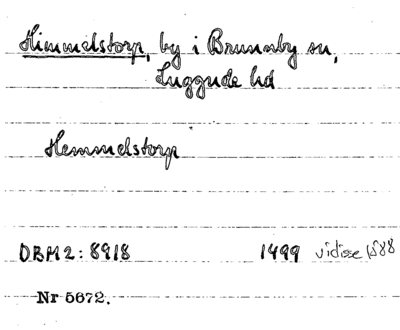 Himmelstorp, by i Brunnby sn,
Luggude hd
Hemmelstorp
DBM2: 8918 1499 vidisse 1588
Nr 5672.